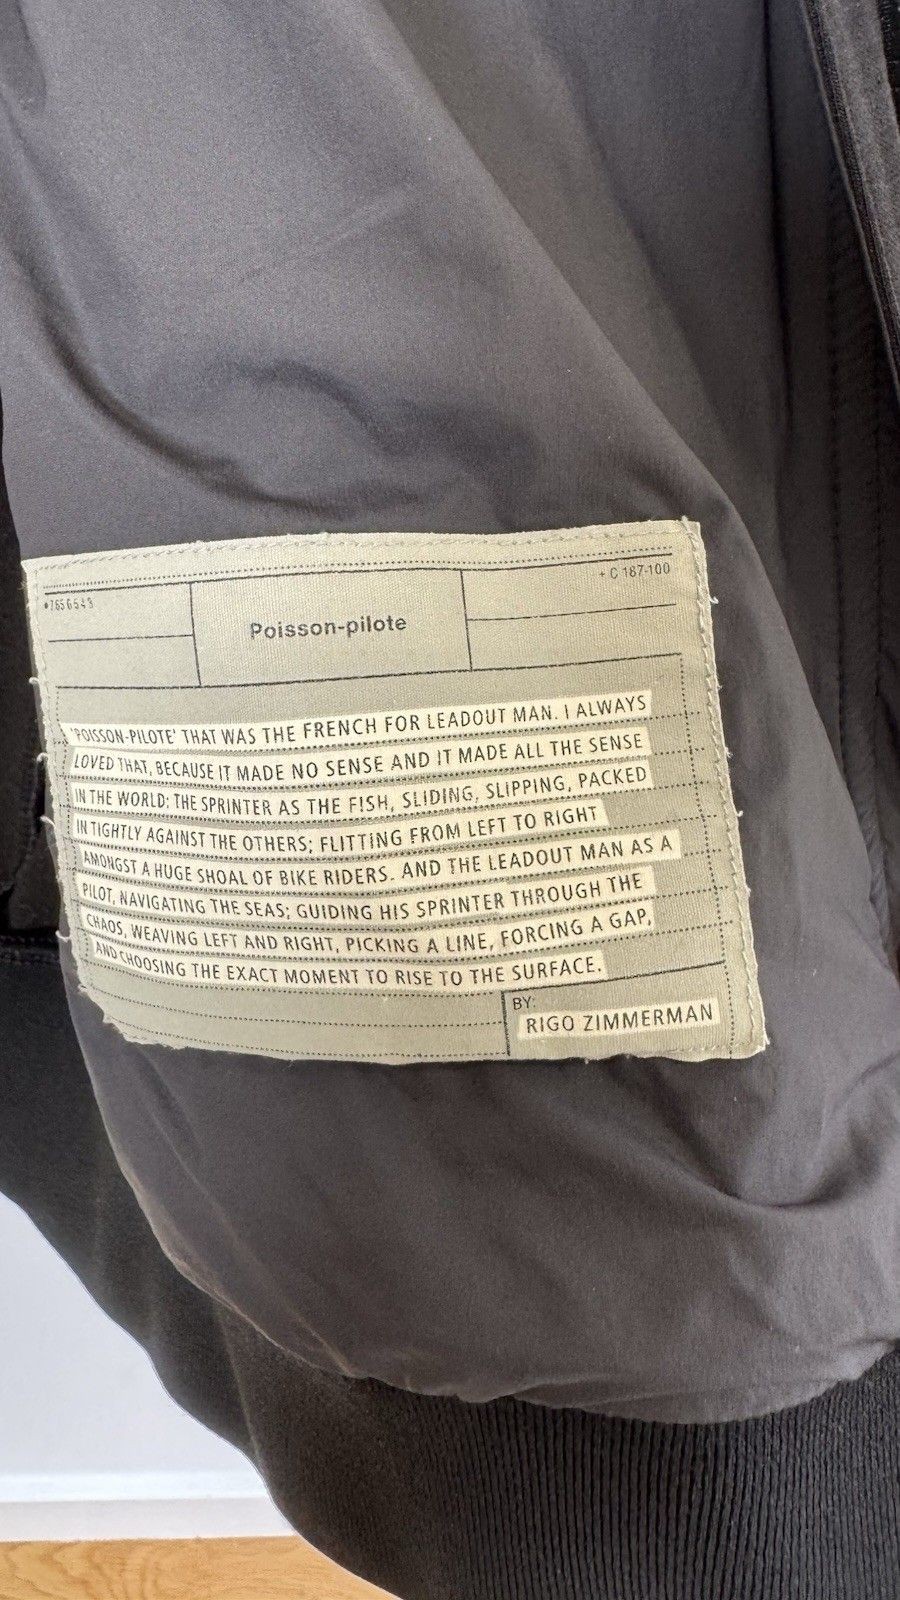 *7656543
+ C 187-100
Poisson-pilote
'POISSON-PILOTE' THAT WAS THE FRENCH FOR LEADOUT MAN. I ALWAYS
LOVED THAT, BECAUSE IT MADE NO SENSE AND IT MADE ALL THE SENSE
IN THE WORLD: THE SPRINTER AS THE FISH, SLIDING, SLIPPING, PACKED
IN TIGHTLY AGAINST THE OTHERS; FLITTING FROM LEFT TO RIGHT
AMONGST A HUGE SHOAL OF BIKE RIDERS. AND THE LEADOUT MAN AS A
PILOT, NAVIGATING THE SEAS; GUIDING HIS SPRINTER THROUGH THE
CHAOS, WEAVING LEFT AND RIGHT, PICKING A LINE, FORCING A GAP,
AND CHOOSING THE EXACT MOMENT TO RISE TO THE SURFACE.
BY:
RIGO ZIMMERMAN